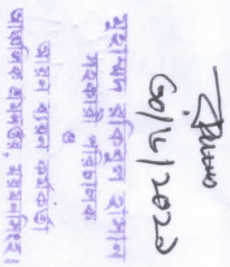 মুহাম্মদ রাকিবুল হাসান
সহকারী পরিচালক
ও
আয়ন ব্যয়ন কর্মকর্তা
আঞ্চলিক শ্রম দপ্তর, ময়মনসিংহ।